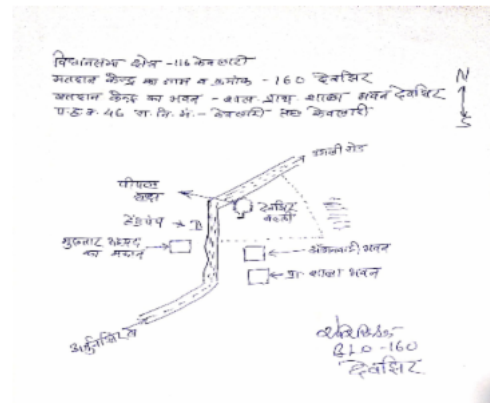 विधानसभा क्षेत्र - 116 केवलारी
मतदान केन्द्र का नाम व क्रमांक - 160 देवझिर
मतदान केन्द्र का भवन - शास. प्राथ. शाला भवन देवझिर
प.ह.न. 46 रा.नि.मं. - केवलारी तह केवलारी
N
S
उगली रोड
पीपल
वृक्ष
हेंडपंप
देवझिर
बस्ती
मकान
आंगनवाड़ी भवन
प्रा. शाला भवन
BLO - 160
देवझिर